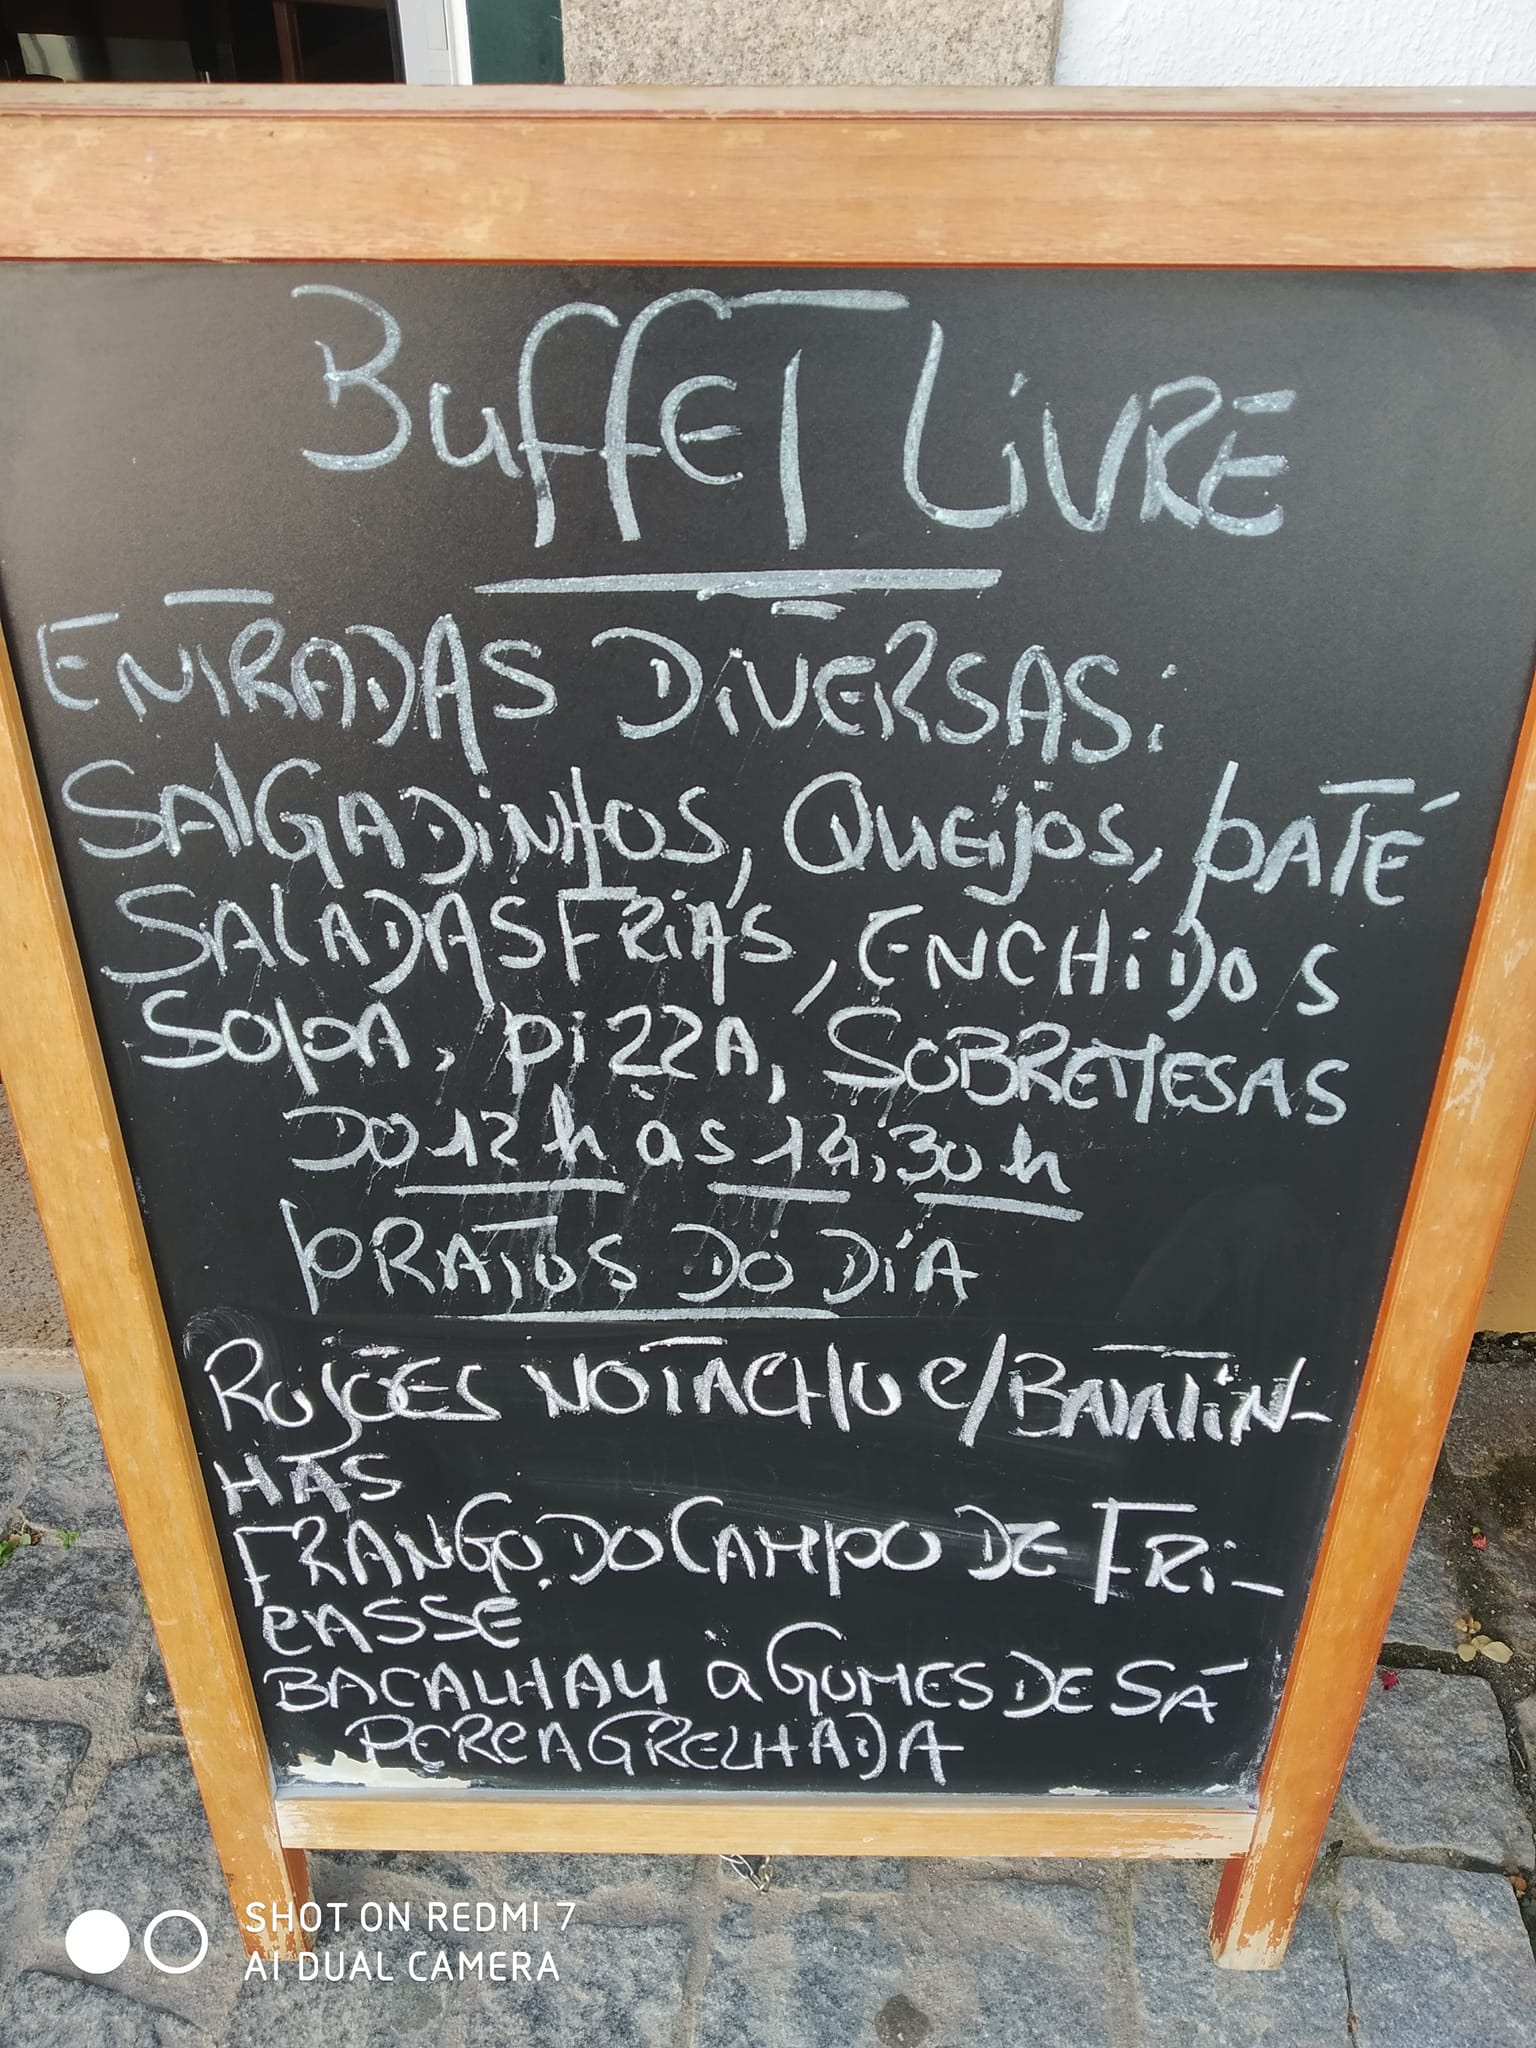 BUFFET LIVRE
ENTRADAS DIVERSAS:
SALGADINHOS, QUEIJOS, PATÉ
SALADAS FRIAS, ENCHIDOS
SOPA, PIZZA, SOBREMESAS
DO 12 h às 14,30 h
PRATOS DO DIA
ROJÕES NO TACHO C/BATATIN-
HAS
FRANGO DO CAMPO DE FRI-
CASSE
BACALHAU à GOMES DE SÁ
PERCA GRELHADA
SHOT ON REDMI 7
AI DUAL CAMERA